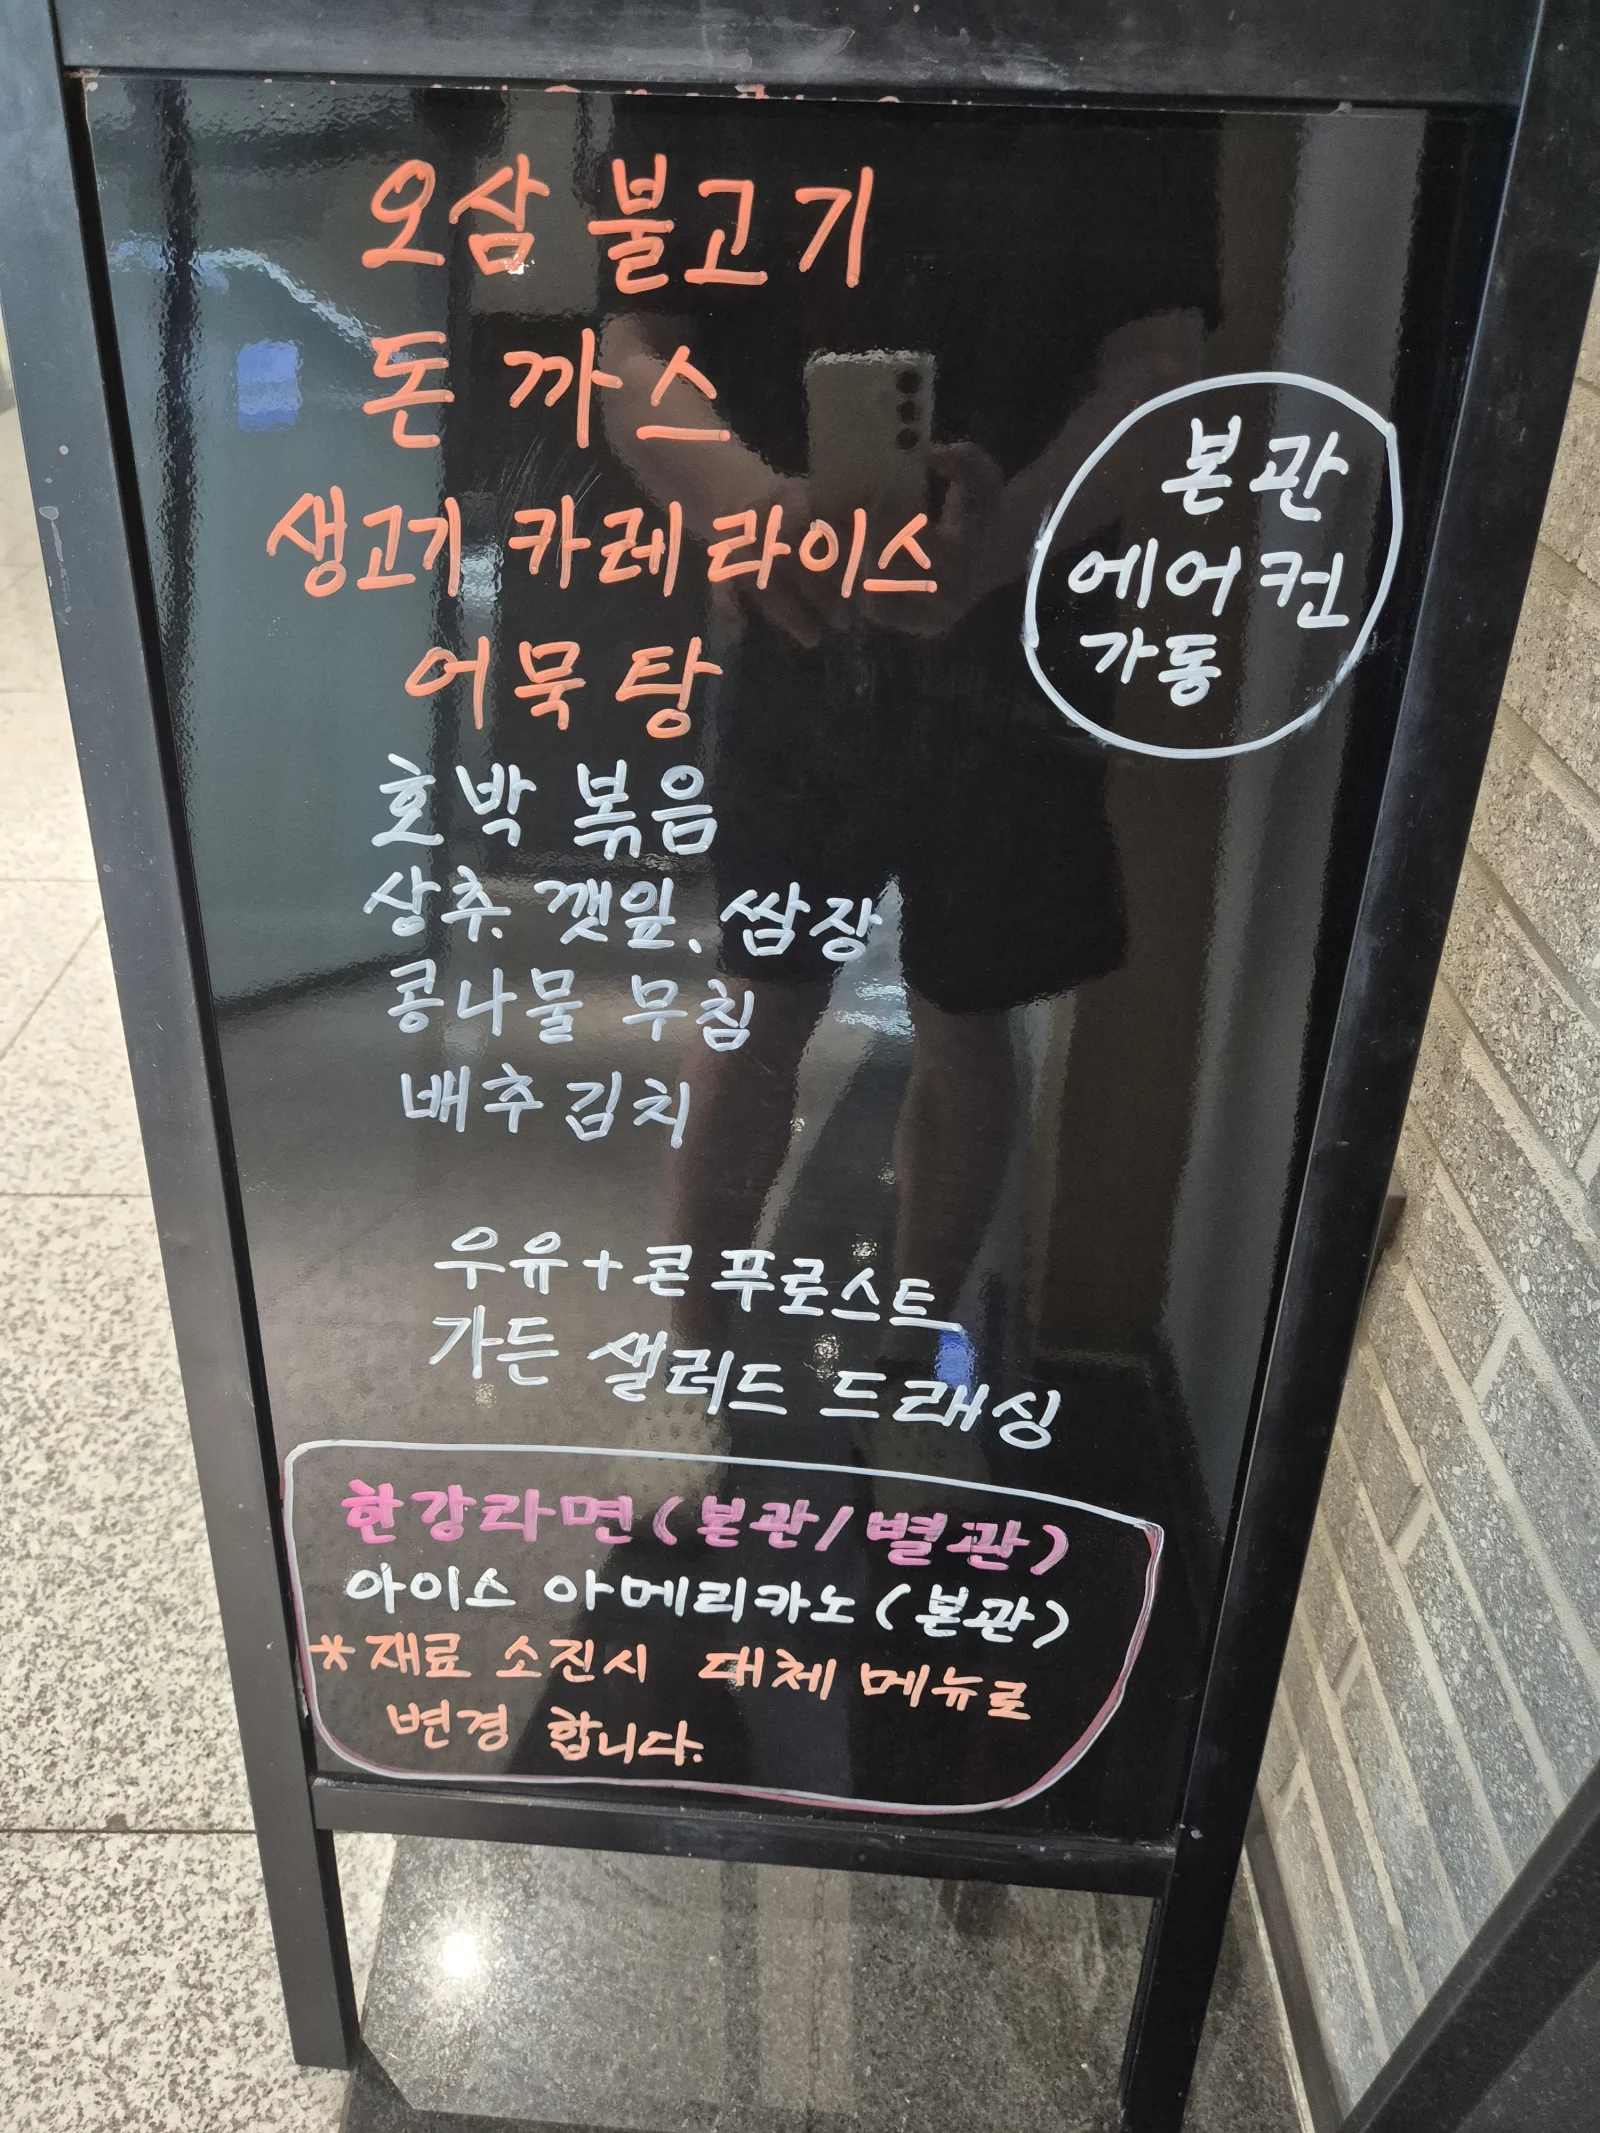 오삼 불고기
돈까스
생고기 카레라이스
어묵탕
본관
에어컨
가동
호박 볶음
상추. 깻잎. 쌈장
콩나물 무침
배추김치
우유+콘푸로스트
가든 샐러드 드래싱
한강라면(본관/별관)
아이스 아메리카노(본관)
*재료 소진시 대체 메뉴로
변경 합니다.